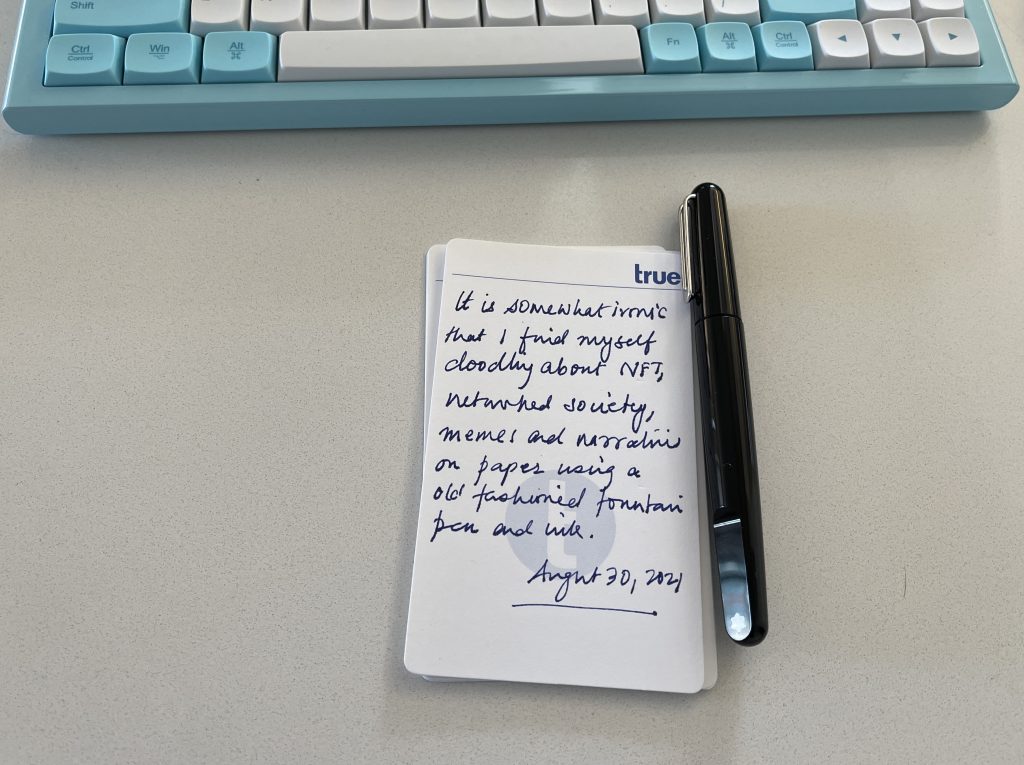 Shift
Ctrl
Control
Win
Alt
⌘
Fn
Alt
⌘
Ctrl
Control
◄
▼
►
true
It is somewhat ironic
that I find myself
doodling about NFT,
networked society,
memes and narrative
on paper using a
old fashioned fountain
pen and ink.
August 30, 2021
t